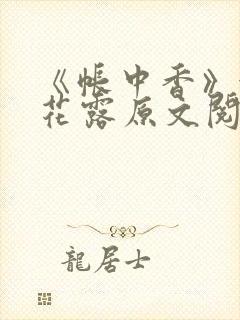 《帐中香》
花露原文阅
龍居士